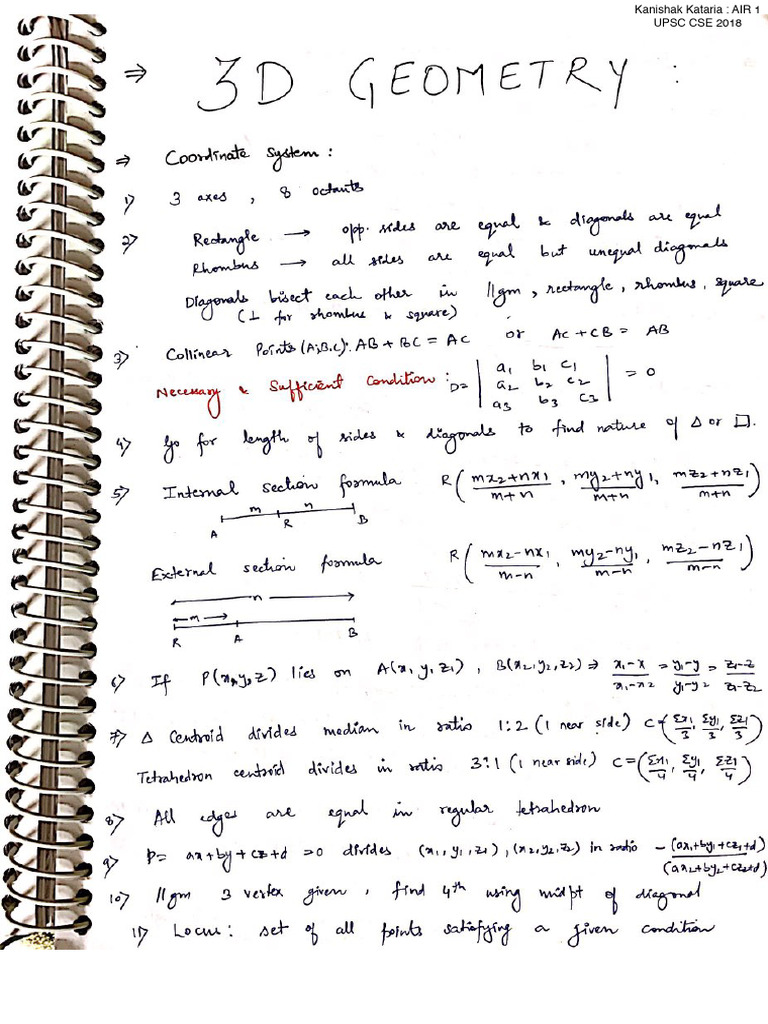 Kanishak Kataria : AIR 1
UPSC CSE 2018
⇒ 3D GEOMETRY :
⇒ Coordinate System :
1) 3 axes , 8 octants
2) Rectangle → opp. sides are equal & diagonals are equal
Rhombus → all sides are equal but unequal diagonals
Diagonals bisect each other in ||gm, rectangle, rhombus, square
(⊥ for rhombus & square)
3) Collinear Points (A,B,C): AB + BC = AC or AC + CB = AB
Necessary & Sufficient Condition : D = | a1 b1 c1 | = 0
a2 b2 c2
a3 b3 c3
4) Go for length of sides & diagonals to find nature of Δ or □.
5) Internal section formula R( (mx2+nx1)/(m+n) , (my2+ny1)/(m+n) , (mz2+nz1)/(m+n) )
m n
A R B
External section formula R( (mx2-nx1)/(m-n) , (my2-ny1)/(m-n) , (mz2-nz1)/(m-n) )
n
m
R A B
6) If P(x,y,z) lies on A(x,y,z1) , B(x2,y2,z2) ⇒ (x1-x)/(x1-x2) = (y1-y)/(y1-y2) = (z1-z)/(z1-z2)
7) Δ Centroid divides median in ratio 1:2 (1 near side) C=(Σx1/3, Σy1/3, Σz1/3)
Tetrahedron centroid divides in ratio 3:1 (1 near side) C=(Σx1/4, Σy1/4, Σz1/4)
8) All edges are equal in regular tetrahedron
9) P= ax+by+cz+d =0 divides (x1,y1,z1),(x2,y2,z2) in ratio -(ax1+by1+cz1+d)/(ax2+by2+cz2+d)
10) ||gm 3 vertex given, find 4th using midpt of diagonal
11) Locus: set of all points satisfying a given condition